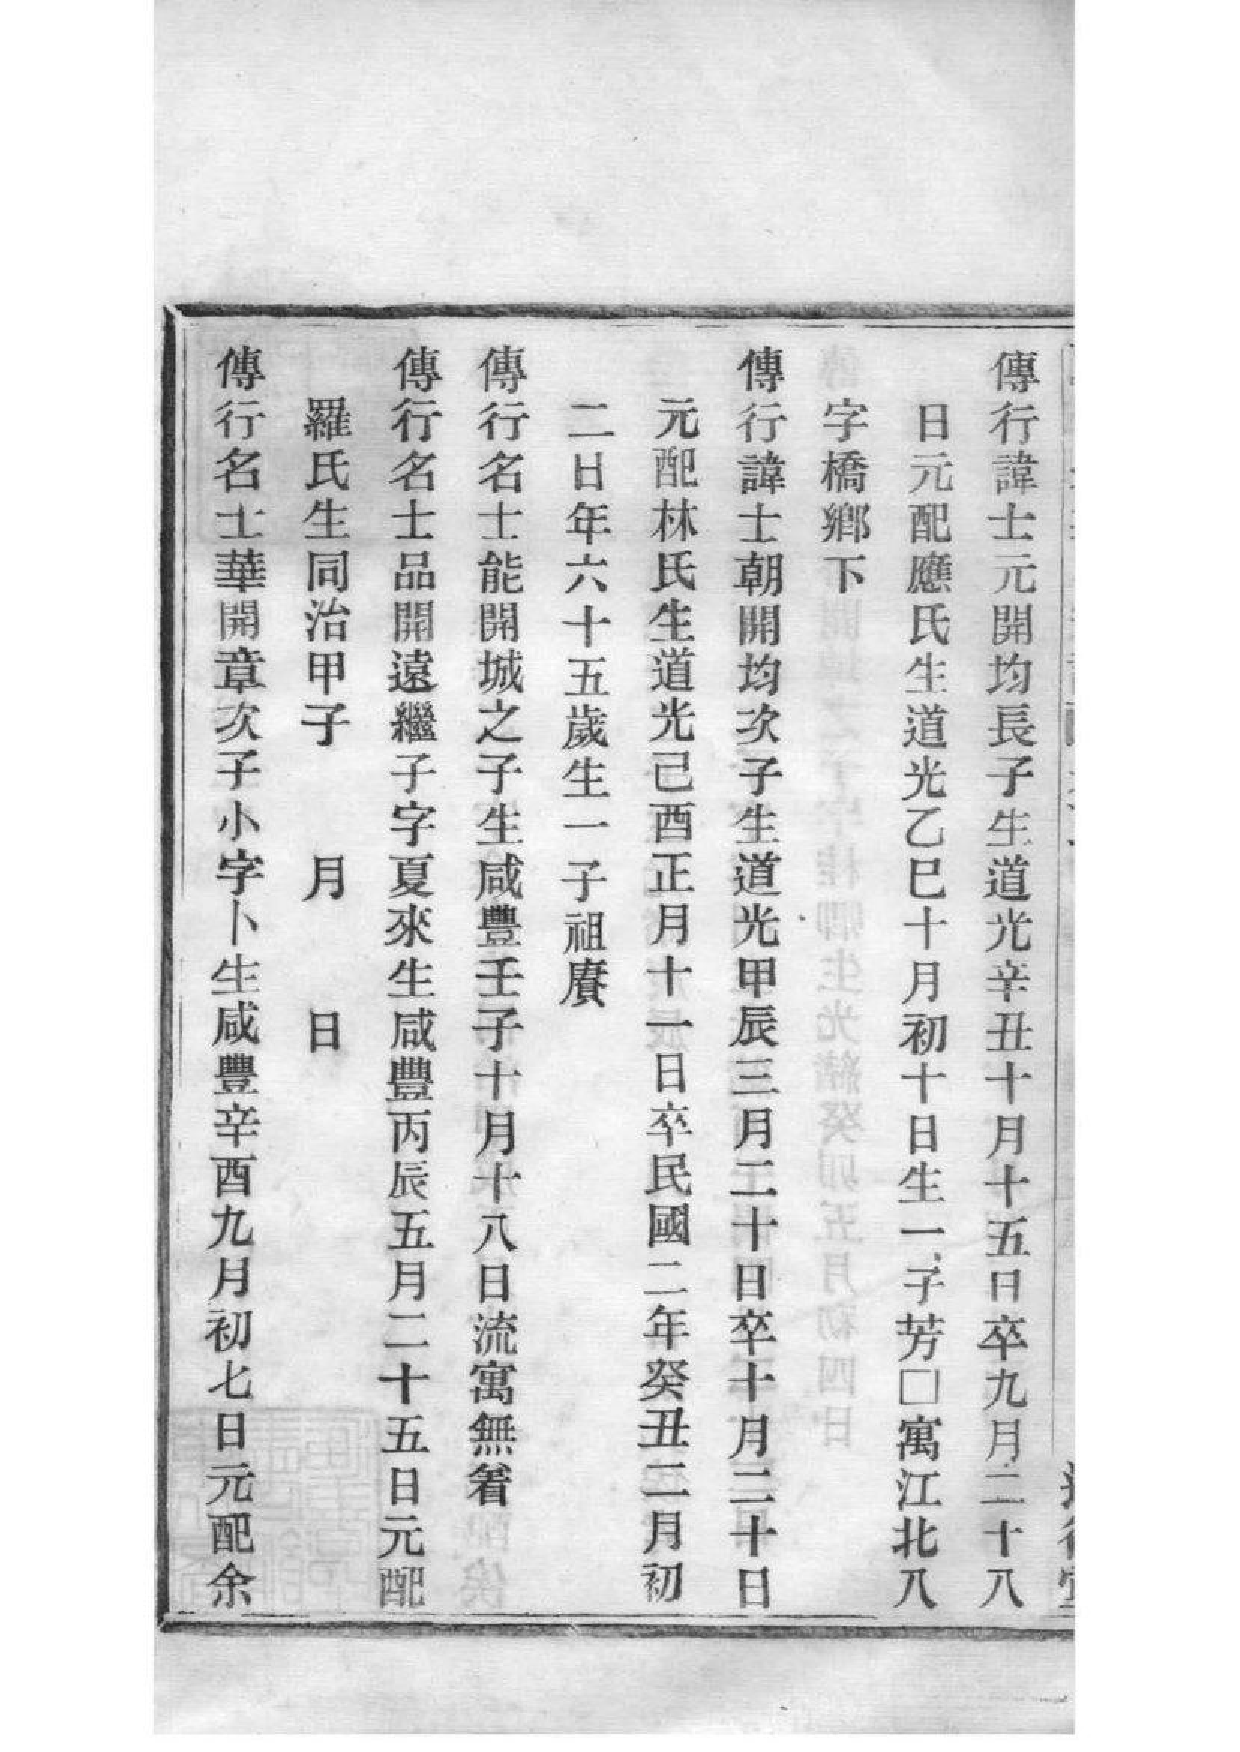 傳行諱士元開均長子生道光辛丑十月十五日卒九月二十八
日元配應氏生道光乙巳十月初十日生一子芳□寓江北八
字橋鄉下
傳行諱士朝開均次子生道光甲辰三月二十日卒十月二十日
元配林氏生道光己酉正月十一日卒民國二年癸丑二月初
二日年六十五歲生一子祖賡
傳行名士能開城之子生咸豐壬子十月十八日流寓無着
傳行名士品開遠繼子字夏來生咸豐丙辰五月二十五日元配
羅氏生同治甲子　月　日
傳行名士華開章次子小字卜生咸豐辛酉九月初七日元配余